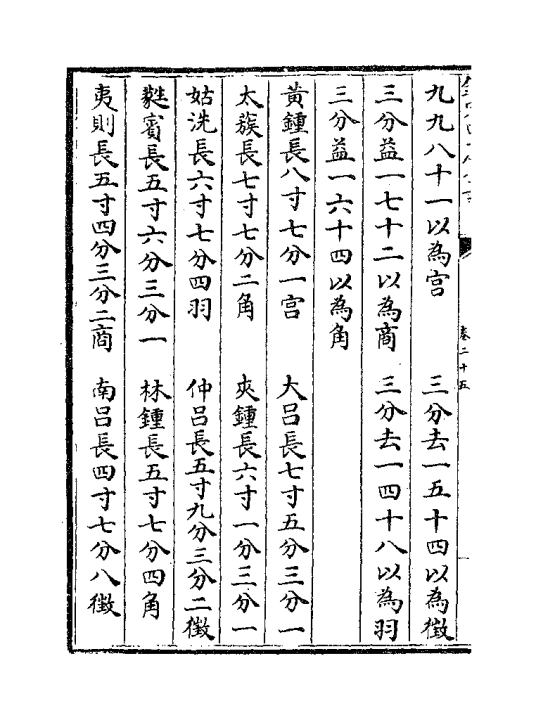 九九八十一以為宫　三分去一五十四以為徴
三分益一七十二以為商　三分去一四十八以為羽
三分益一六十四以為角
黄鍾長八寸七分一宫　大吕長七寸五分三分一
太簇長七寸七分二角　夾鍾長六寸一分三分一
姑洗長六寸七分四羽　仲吕長五寸九分三分二徴
蕤賓長五寸六分三分一　林鍾長五寸七分四角
夷則長五寸四分三分二商　南吕長四寸七分八徴
卷二十五